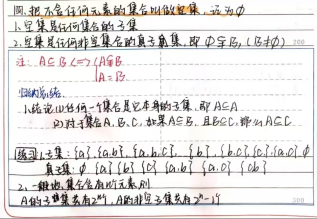 四.把不含任何元素的集合叫做空集,记为∅
1.空集是任何集合的子集
2.空集是任何非空集合的真子集,即∅⫋B,(B≠∅)
200
注: A⊆B<=>{A⫋B
A=B.
归纳总结
1.结论(1)任何一个集合是它本身的子集,即A⊆A
(2)对于集合A、B、C,如果A⊆B,且B⊆C,那么A⊆C
练习1.子集:{a}.{a.b}.{a,b,c}.{b}.{b.c}.{c}.{a.c} ∅
真子集:∅ {a} {b} {c} {a,b} {a.c} {cb}
2.一般地,集合含有n个元素,则
A的子集共有2ⁿ个,A的非空子集共有2ⁿ-1个
300